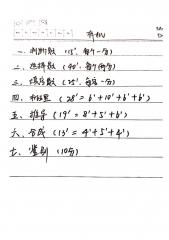 有机
一、判断题(15', 每个一分)
二、选择题(40', 每个两分)
三、填空题(25', 每空一分)
四、机理(28' = 6' + 10' + 6' + 6')
五、推导(19' = 8' + 5' + 6')
六、合成(13' = 4' + 5' + 4')
七、鉴别(10分)